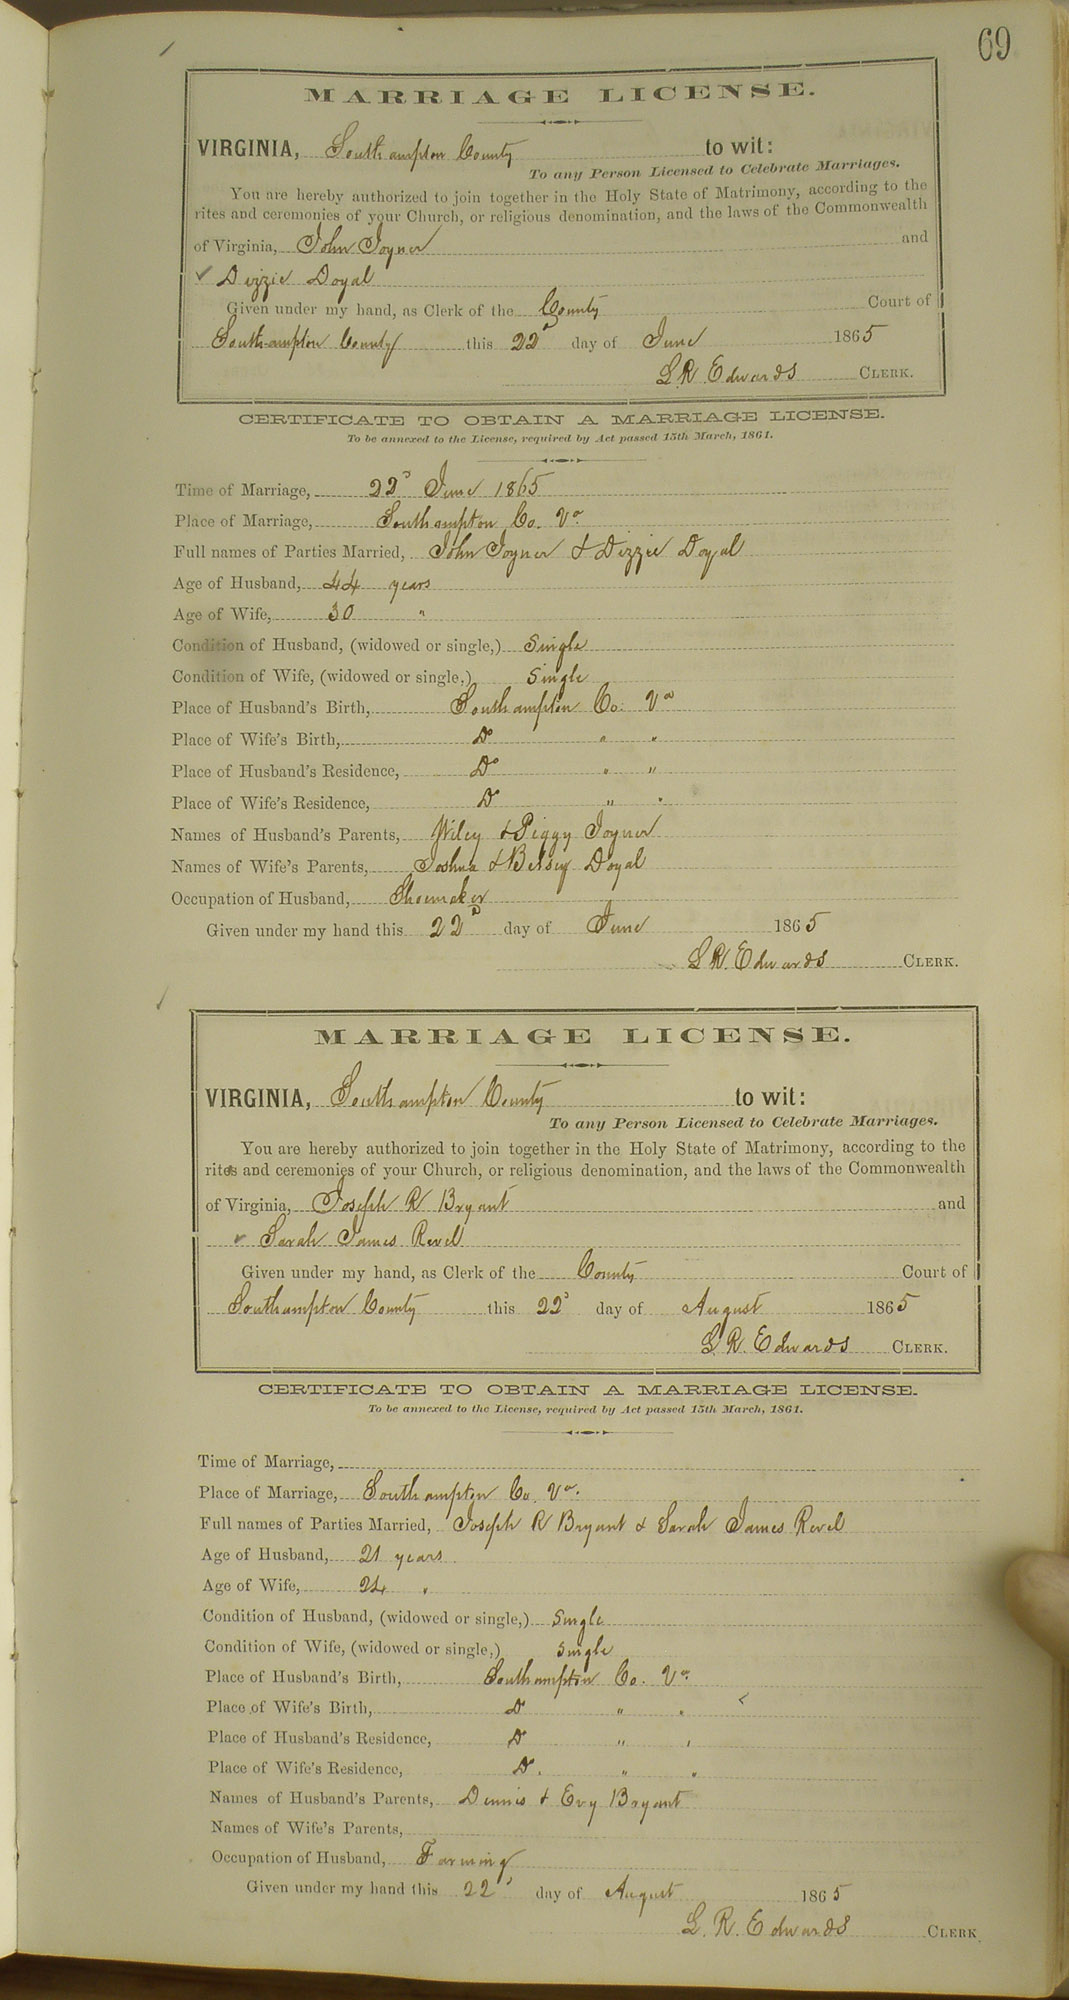 69
MARRIAGE LICENSE.
VIRGINIA, Southampton County to wit:
To any Person Licensed to Celebrate Marriages.
You are hereby authorized to join together in the Holy State of Matrimony, according to the
rites and ceremonies of your Church, or religious denomination, and the laws of the Commonwealth
of Virginia, John Joyner and
✓ Dizzie Doyal
Given under my hand, as Clerk of the County Court of
Southampton County this 22d day of June 1865
L. R. Edwards CLERK.
CERTIFICATE TO OBTAIN A MARRIAGE LICENSE.
To be annexed to the License, required by Act passed 15th March, 1861.
Time of Marriage, 22d June 1865
Place of Marriage, Southampton Co. Va
Full names of Parties Married, John Joyner & Dizzie Doyal
Age of Husband, 44 years
Age of Wife, 30 "
Condition of Husband, (widowed or single,) Single
Condition of Wife, (widowed or single,) Single
Place of Husband's Birth, Southampton Co. Va
Place of Wife's Birth, Do " "
Place of Husband's Residence, Do " "
Place of Wife's Residence, Do " "
Names of Husband's Parents, Wiley & Piggy Joyner
Names of Wife's Parents, Joshua & Betsey Doyal
Occupation of Husband, Shoemaker
Given under my hand this 22d day of June 1865
L R. Edwards CLERK.
MARRIAGE LICENSE.
VIRGINIA, Southampton County to wit:
To any Person Licensed to Celebrate Marriages.
You are hereby authorized to join together in the Holy State of Matrimony, according to the
rites and ceremonies of your Church, or religious denomination, and the laws of the Commonwealth
of Virginia, Joseph R Bryant and
✓ Sarah James Revel
Given under my hand, as Clerk of the County Court of
Southampton County this 22d day of August 1865
L. R. Edwards CLERK.
CERTIFICATE TO OBTAIN A MARRIAGE LICENSE.
To be annexed to the License, required by Act passed 15th March, 1861.
Time of Marriage,
Place of Marriage, Southampton Co. Va.
Full names of Parties Married, Joseph R Bryant & Sarah James Revel
Age of Husband, 21 years
Age of Wife, 24 "
Condition of Husband, (widowed or single,) Single
Condition of Wife, (widowed or single,) Single
Place of Husband's Birth, Southampton Co. Va.
Place of Wife's Birth, Do " "
Place of Husband's Residence, Do " "
Place of Wife's Residence, Do. " "
Names of Husband's Parents, Dennis & Evy Bryant
Names of Wife's Parents,
Occupation of Husband, Farming
Given under my hand this 22d day of August 1865
L. R. Edwards CLERK